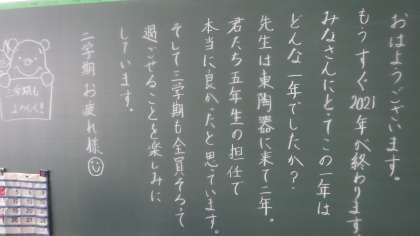 おはようございます。
もうすぐ2021年が終わります
みなさんにとってこの一年は
どんな一年でしたか？
先生は東陶器に来て二年。
君たち五年生の担任で
本当に良かったと思っています。
そして三学期も全員そろって
過ごせることを楽しみに
しています。
二学期お疲れ様
三学期も
よろしく！